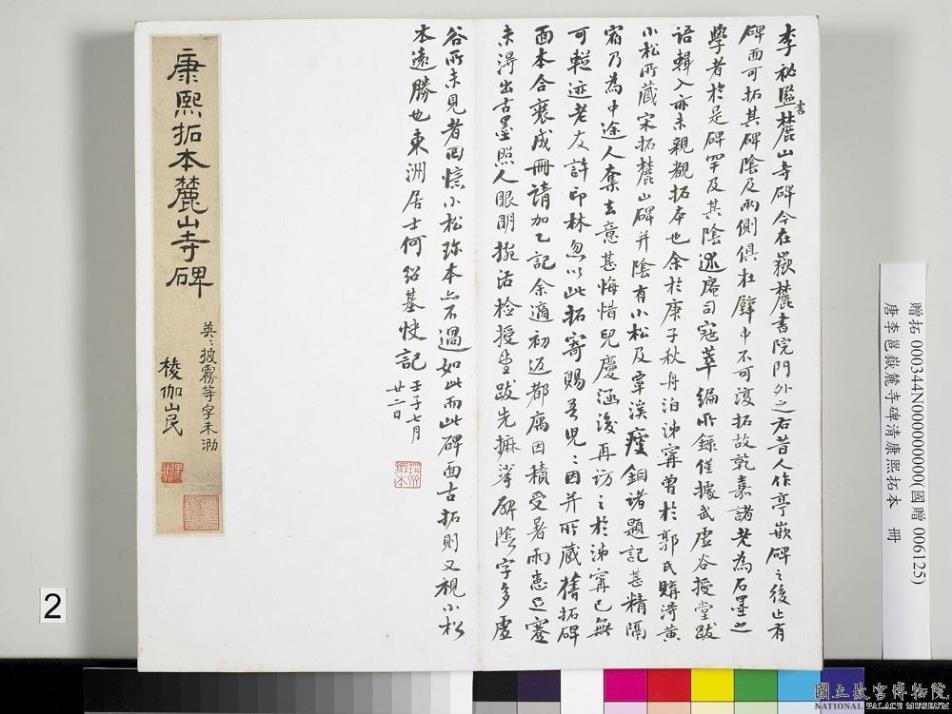 李祕監書麓山寺碑今在嶽麓書院門外之右昔人作亭嵌碑之後止有
碑面可拓其碑陰及兩側俱杜壁中不可復拓故乾嘉諸老為石墨之
學者於是碑罕及其陰述庵司寇萃編所錄僅據武虛谷授堂跋
語輯入亦未親觀拓本也余於庚子秋舟泊沛寧曾於郭氏購得黃
小松所藏宋拓麓山碑并陰有小松及覃溪瘦銅諸題記甚精隔
宿乃為中途人奪去意甚悔惜兒慶涵後再訪之於沛寧已無
可蹤迹老友許印林忽以此拓寄賜吾兒兒因并所藏舊拓碑
面本合裝成冊請加乙記余適初返都腐因積受暑雨患正蹇
未得出古墨照人眼明捥活檢授堂跋先摩挲碑陰字多虛
谷所未見者因憶小松珍本亦不過如此而此碑面古拓則又視小松
本遠勝也東洲居士何紹基快記 壬子七月
廿二日
康熙拓本麓山寺碑
英英披霧等字未泐
棱伽山民
贈拓 000344N000000000(國贈 006125)
唐李邕嶽麓寺碑清康熙拓本 冊
2
國立故宮博物院
NATIONAL PALACE MUSEUM